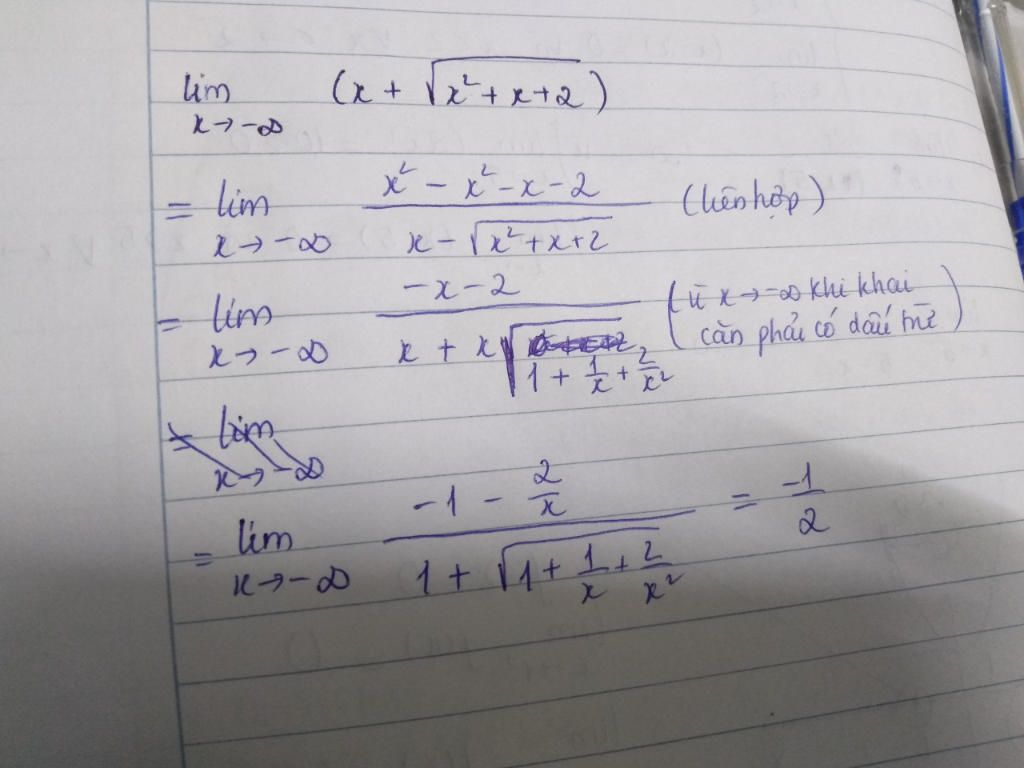 lim (x + √(x² + x + 2))
x → -∞
= lim (x² - x² - x - 2)/(x - √(x² + x + 2)) (liên hợp)
x → -∞
= lim (-x - 2)/(x + x√(1 + 1/x + 2/x²)) (vì x → -∞ khi khai
x → -∞ căn phải có dấu trừ)
= lim
x → -∞
= lim (-1 - 2/x)/(1 + √(1 + 1/x + 2/x²)) = -1/2
x → -∞